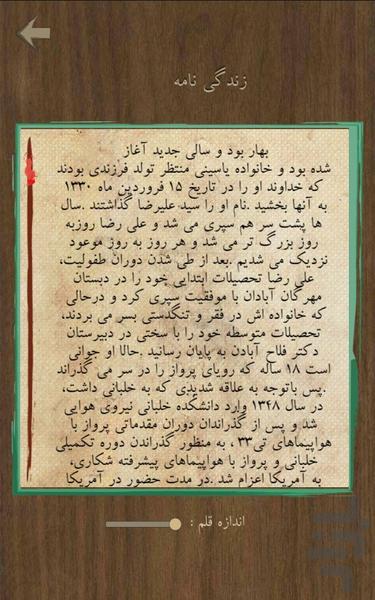 زندگی نامه
بهار بود و سالی جدید آغاز
شده بود و خانواده یاسینی منتظر تولد فرزندی بودند
که خداوند او را در تاریخ ۱۵ فروردین ماه ۱۳۳۰
به آنها بخشید .نام او را سید علیرضا گذاشتند .سال
ها پشت سر هم سپری می شد و علی رضا روزبه
روز بزرگ تر می شد و هر روز به روز موعود
نزدیک می شدیم .بعد از طی شدن دوران طفولیت،
علی رضا تحصیلات ابتدایی خود را در دبستان
مهرگان آبادان با موفقیت سپری کرد و درحالی
که خانواده اش در فقر و تنگدستی بسر می بردند،
تحصیلات متوسطه خود را با سختی در دبیرستان
دکتر فلاح آبادن به پایان رسانید .حالا او جوانی
است ۱۸ ساله که رویای پرواز را در سر می گذراند
.پس باتوجه به علاقه شدیدی که به خلبانی داشت،
در سال ۱۳۴۸ وارد دانشکده خلبانی نیروی هوایی
شد و پس از گذراندن دوران مقدماتی پرواز با
هواپیماهای تی۳۳ ، به منظور گذراندن دوره تکمیلی
خلبانی و پرواز با هواپیماهای پیشرفته شکاری،
به آمریکا اعزام شد .در مدت حضور در آمریکا
اندازه قلم :
بازار